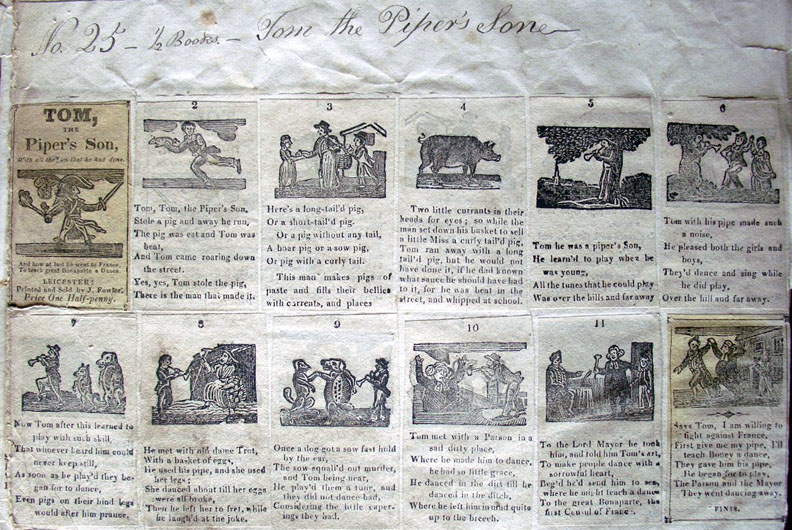 No. 25 - ½ Books. - Tom the Piper's Sone
TOM,
THE
Piper's Son,
With all the fun that he had done,
And how at last he went to France,
To teach great Bonaparte a Dance.
LEICESTER:
Printed and Sold by J. Fowler.
Price One Half-penny.
2
Tom, Tom, the Piper's Son,
Stole a pig and away he run,
The pig was eat and Tom was
beat,
And Tom came roaring down
the street.
Yes, yes, Tom stole the pig,
There is the man that made it.
3
Here's a long-tail'd pig,
Or a short-tail'd pig.
Or a pig without any tail,
A boar pig or a sow pig,
Or pig with a curly tail.
This man makes pigs of
paste and fills their bellies
with currents, and places
4
Two little currants in their
heads for eyes; so while the
man set down his basket to sell
a little Miss a curly tail'd pig,
Tom ran away with a long
tail'd pig, but he would not
have done it, if he had known
what sauce he should have had
to it, for he was beat in the
street, and whipped at school.
5
Tom he was a piper's Son,
He learn'd to play when he
was young,
All the tunes that he could play
Was over the hills and far away
6
Tom with his pipe made such
a noise,
He pleased both the girls and
boys,
They'd dance and sing while
he did play,
Over the hill and far away.
7
Now Tom after this learned to
play with such skill,
That whoever heard him could
never keep still,
As soon as he play'd they be-
gan for to dance,
Even pigs on their hind legs
would after him prance.
8
He met with old dame Trot,
With a basket of eggs,
He used his pipe, and she used
her legs;
She danced about till her eggs
were all broke,
Then he left her to fret, while
he laugh'd at the joke.
9
Once a dog got a sow fast hold
by the ear,
The sow squall'd out murder,
and Tom being near,
He play'd them a tune, and
they did not dance bad,
Considering the little caper-
ings they had.
10
Tom met with a Parson in a
sad dirty place,
Where he made him to dance,
he had so little grace,
He danced in the dirt till he
danced in the ditch,
Where he left him in mud quite
up to the breech.
11
To the Lord Mayor he took
him, and told him Tom's art,
To make people dance with a
sorrowful heart,
Beg'd he'd send him to sea,
where he might teach a dance
To the great Bonaparte, the
first Consul of France.
Says Tom, I am willing to
fight against France,
First give me my pipe, I'll
teach Boney a dance,
They gave him his pipe
He began for to play,
The Parson and the Mayor
They went dancing away.
FINIS.